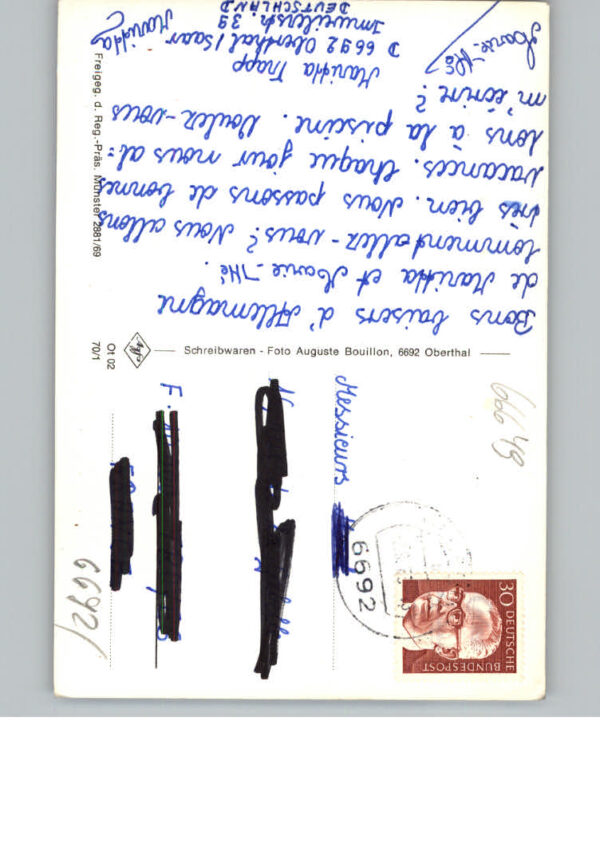 Bons baisers d'Allemagne
de Maritta et Marie-Thé.
Comment allez-vous? Nous allons
très bien. Nous passons de bonnes
vacances. Chaque jour nous al=
lons à la piscine. Voulez-vous
m'écrire?
Maritta Trapp
D 6692 Oberthal/Saar
Imweilerstr. 39
DEUTSCHLAND
Maritta
Marie-Thé
Freigeg. d. Reg.-Präs. Münster 2881/69
Schreibwaren - Foto Auguste Bouillon, 6692 Oberthal
Agfa
Ot 02
70/1
Messieurs
F.
6692
30 DEUTSCHE
BUNDESPOST
6692/